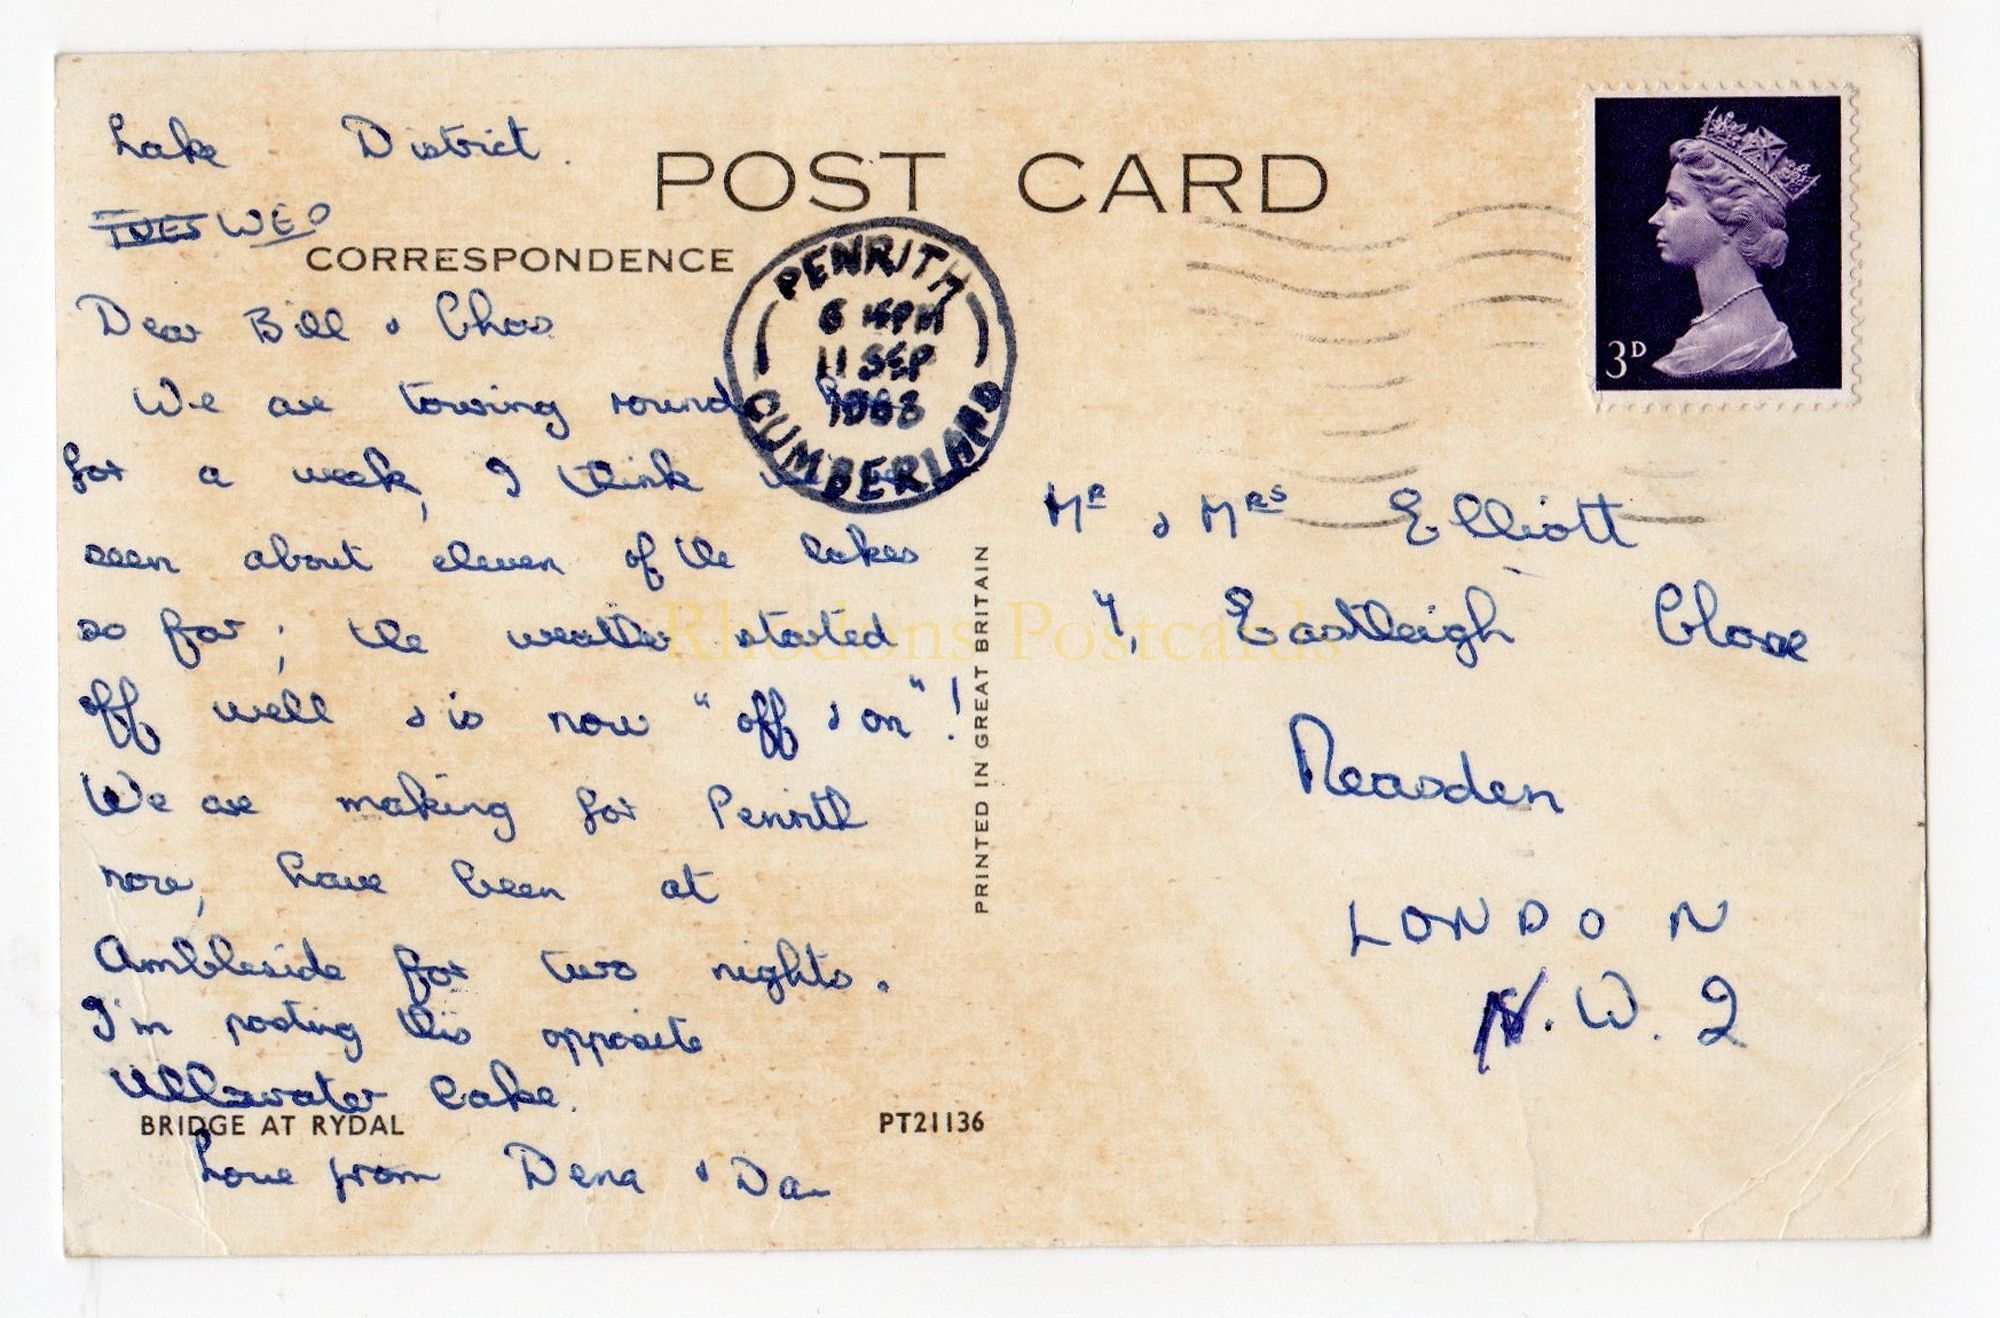 Lake District.
TUES WED
POST CARD
CORRESPONDENCE
Dear Bill & Chas
We are touring round here
for a week, I think we've
seen about eleven of the lakes
so far; the weather started
off well & is now "off & on"!
We are making for Penrith
now, have been at
Ambleside for two nights.
I'm posting this opposite
Ullswater Lake.
BRIDGE AT RYDAL
PT21136
Love from Dena &
PENRITH
6 PM
11 SEP
1968
CUMBERLAND
PRINTED IN GREAT BRITAIN
3D
Mr & Mrs Elliott
Eastleigh Close
Neasden
LONDON
N.W. 2
Rhodens Postcards